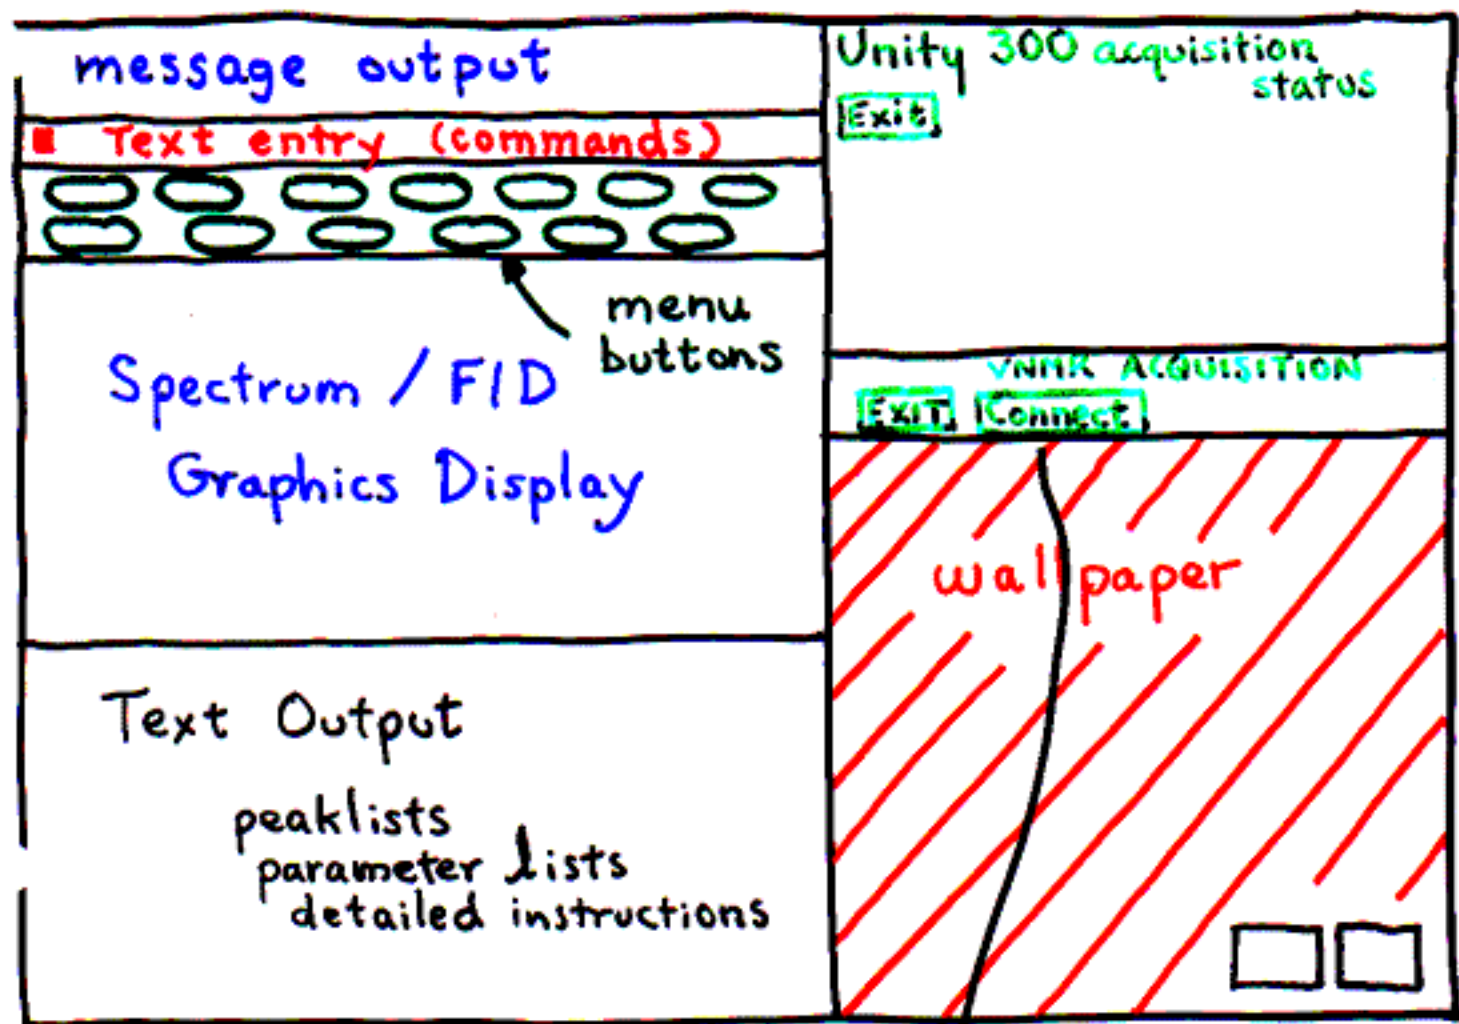 message output
Text entry (commands)
menu
buttons
Spectrum / FID
Graphics Display
Text Output
peaklists
parameter lists
detailed instructions
Unity 300 acquisition
status
Exit
VNMR ACQUISITION
EXIT Connect
wallpaper